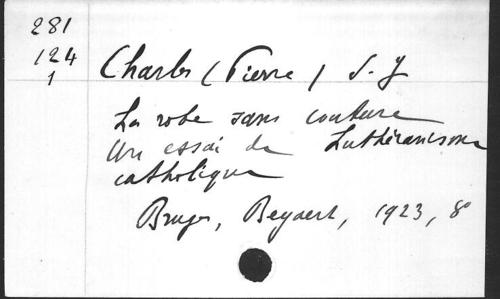 281
124
1
Charles (Pierre) S. J
La robe sans couture
Un essai de Luthéranisme
catholique
Bruges, Beyaert, 1923, 8°